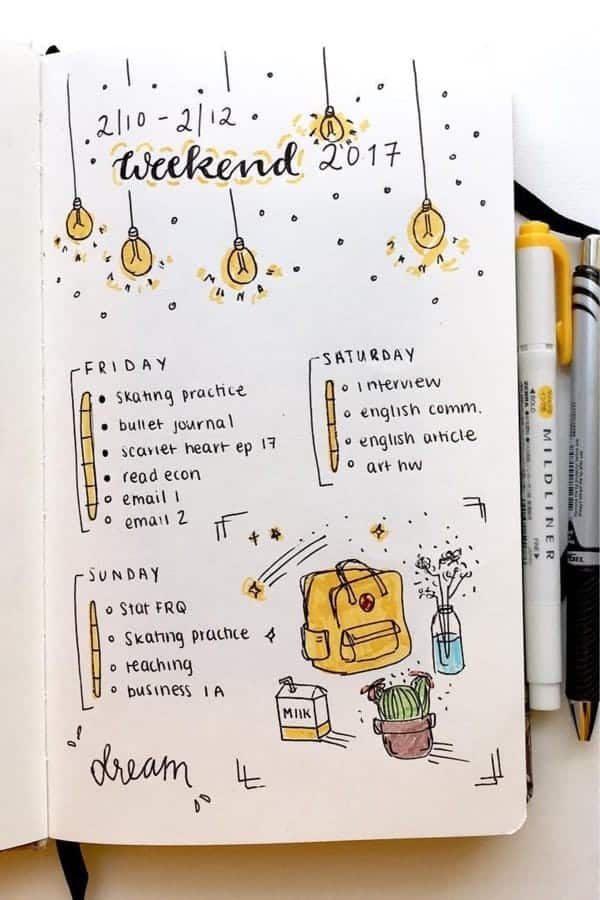 2/10 - 2/12
weekend 2017
FRIDAY
skating practice
bullet journal
scarlet heart ep 17
read econ
email 1
email 2
SATURDAY
interview
english comm.
english article
art hw
SUNDAY
Stat FRQ
Skating practice
teaching
business IA
MIlK
dream
MILDLINER
ZEBRA
BOLD
FINE
GEL